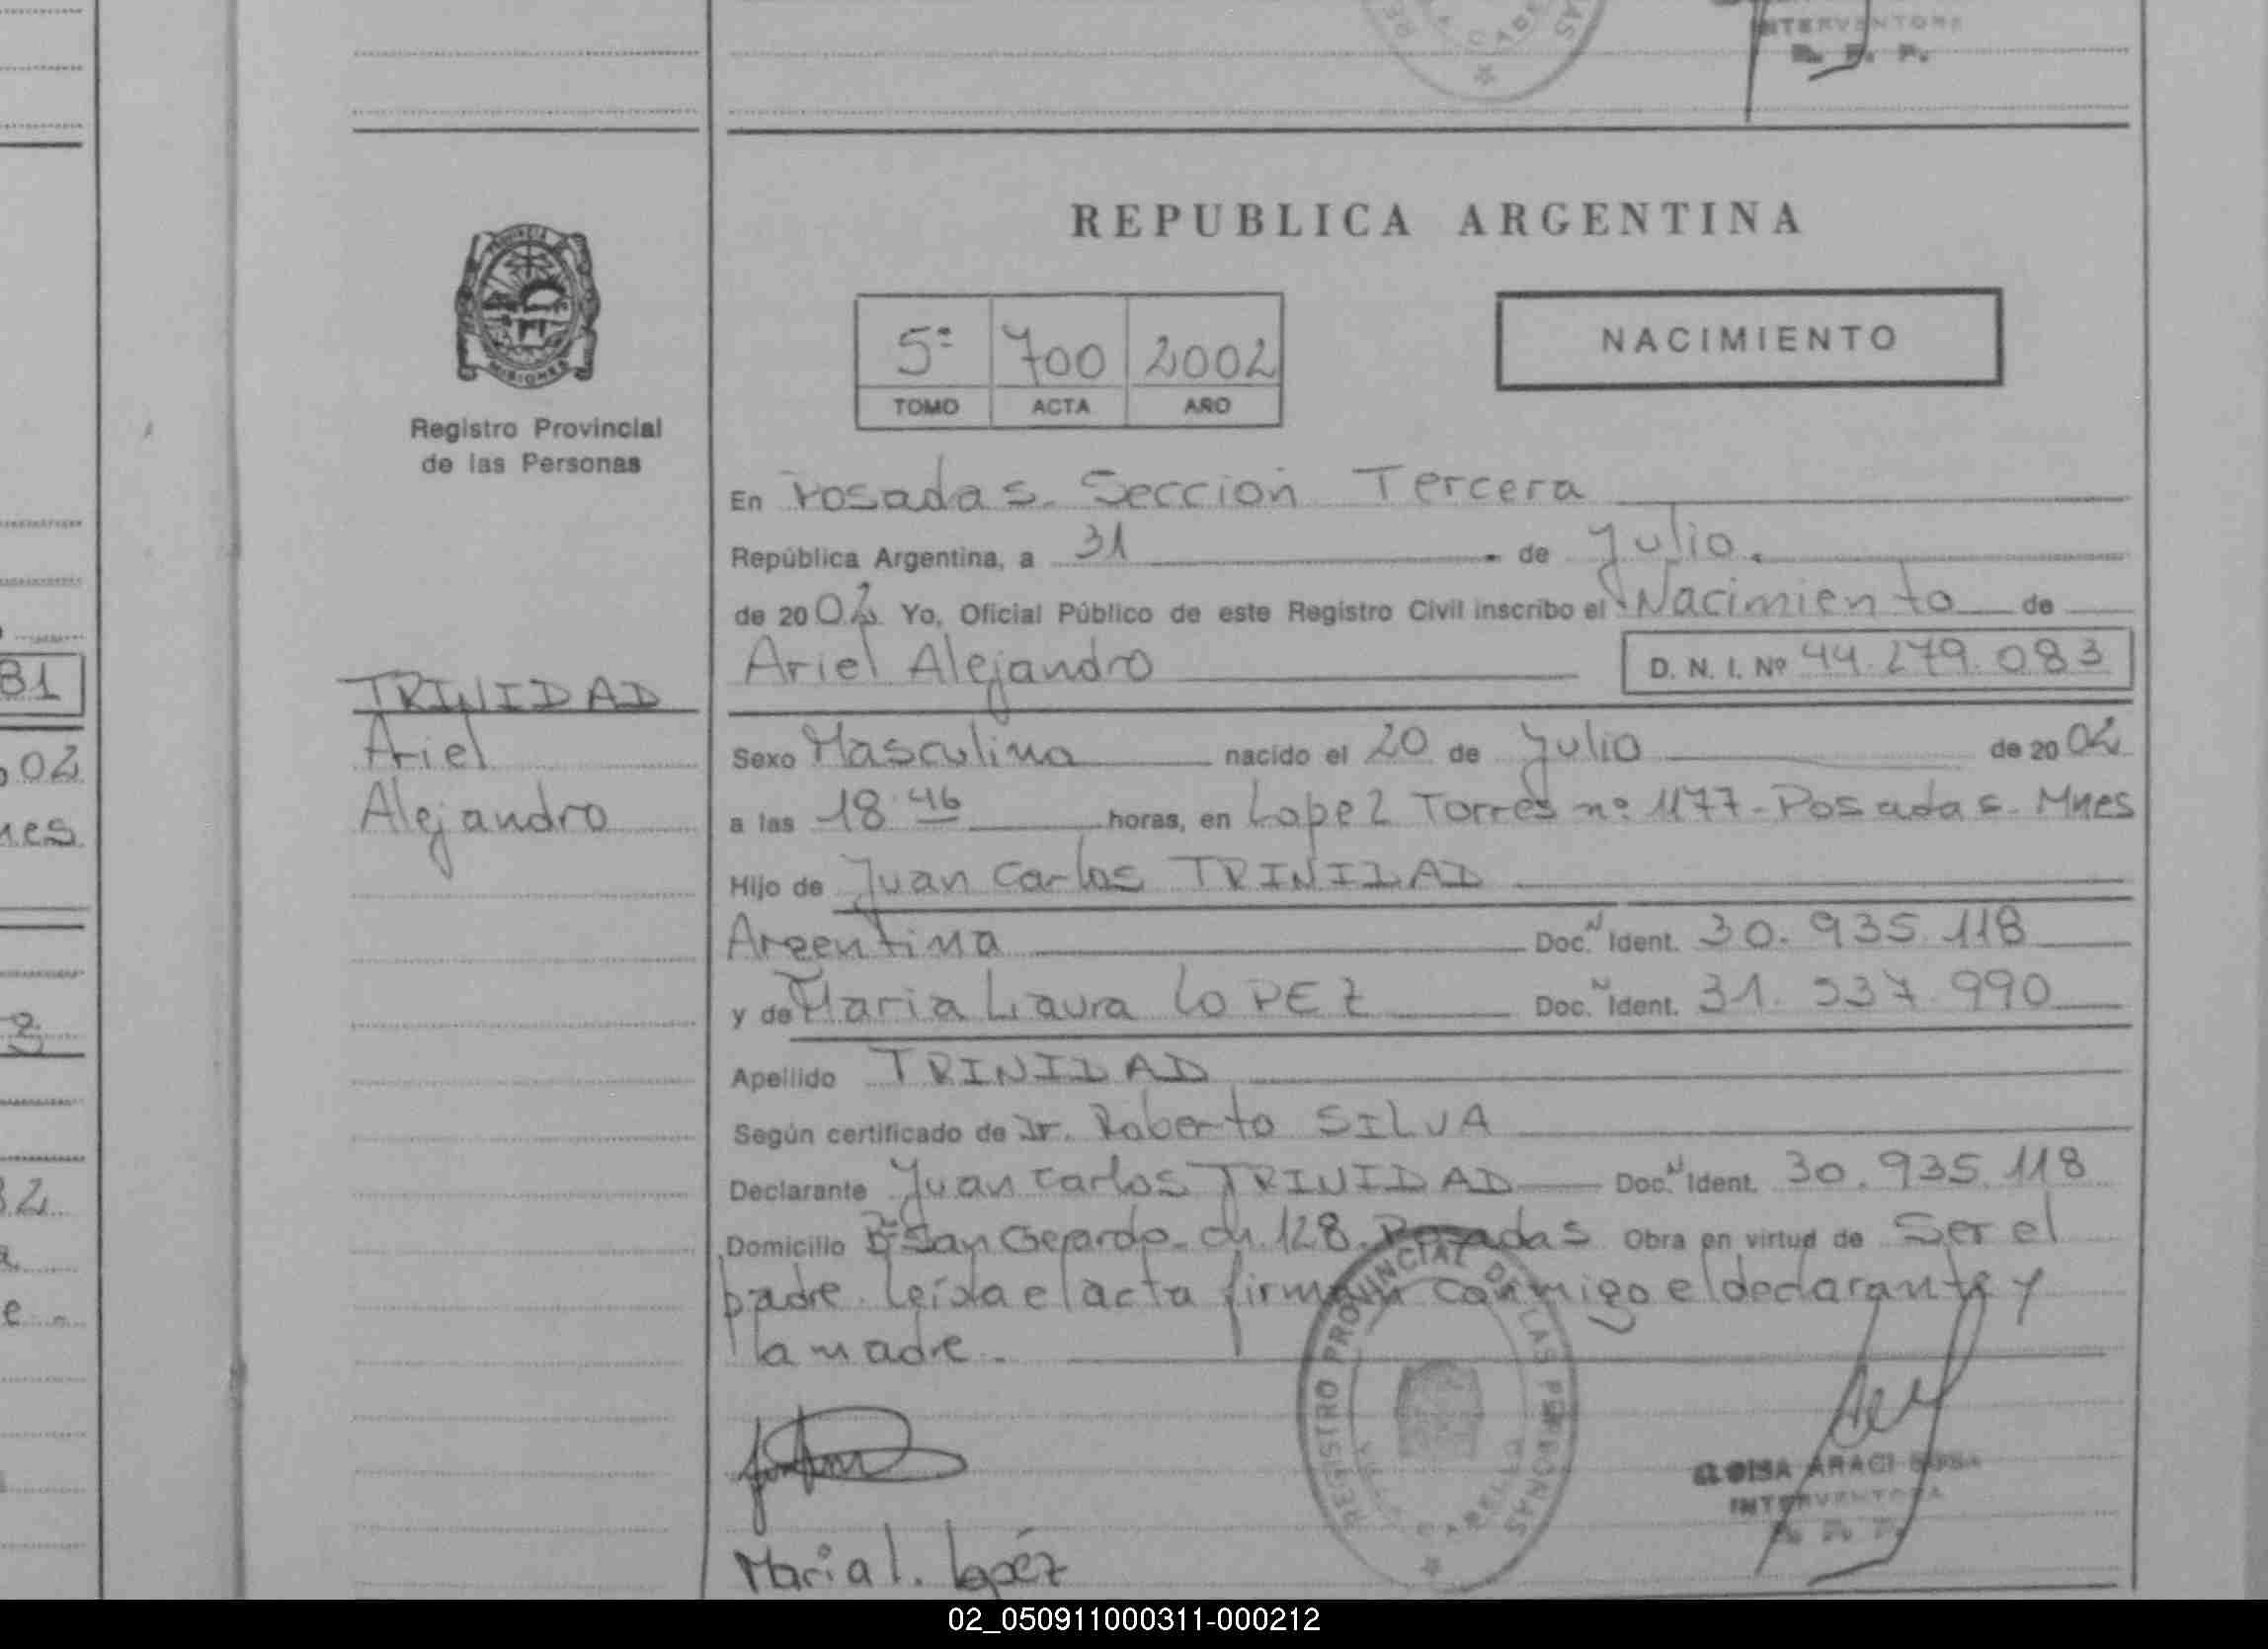 INTERVENTORA
R. P. P.
REPUBLICA ARGENTINA
PROVINCIA DE
MISIONES
Registro Provincial
de las Personas
5º 700 2002
TOMO ACTA AÑO
NACIMIENTO
En Posadas. Sección Tercera
República Argentina, a 31 de Julio.
de 2002 Yo, Oficial Público de este Registro Civil inscribo el Nacimiento de
Ariel Alejandro D. N. I. Nº 44.279.083
TRINIDAD
Ariel
Alejandro
Sexo Masculino nacido el 20 de Julio de 2002
a las 18:46 horas, en Lopez Torres nº 1177-Posadas. Mnes
Hijo de Juan Carlos TRINIDAD
Argentina Doc. N Ident. 30.935.118
y de Maria Laura LOPEZ Doc. N Ident. 31.537.990
Apellido TRINIDAD
Según certificado de Dr. Roberto SILVA
Declarante Juan Carlos TRINIDAD Doc. N Ident. 30.935.118
Domicilio Bº San Gerardo. ch 128. Posadas Obra en virtud de Ser el
padre. Leída el acta firman conmigo el declarante y
la madre.
REGISTRO PROVINCIAL DE LAS PERSONAS
Maria l. Lopéz
ARACI SOSA
INTERVENTORA
R. P. P.
81
02
nes
3
2
e
02_050911000311-000212